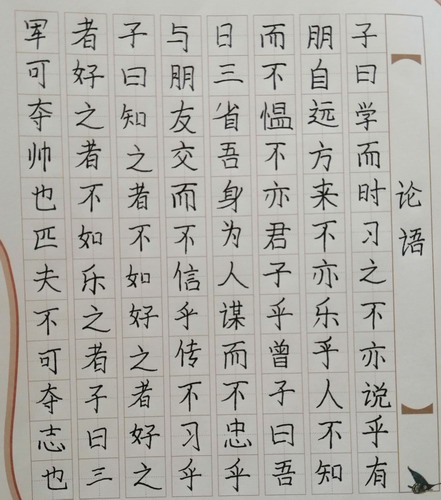 论语
子曰学而时习之不亦说乎有
朋自远方来不亦乐乎人不知
而不愠不亦君子乎曾子曰吾
日三省吾身为人谋而不忠乎
与朋友交而不信乎传不习乎
子曰知之者不如好之者好之
者好之者不如乐之者子曰三
军可夺帅也匹夫不可夺志也